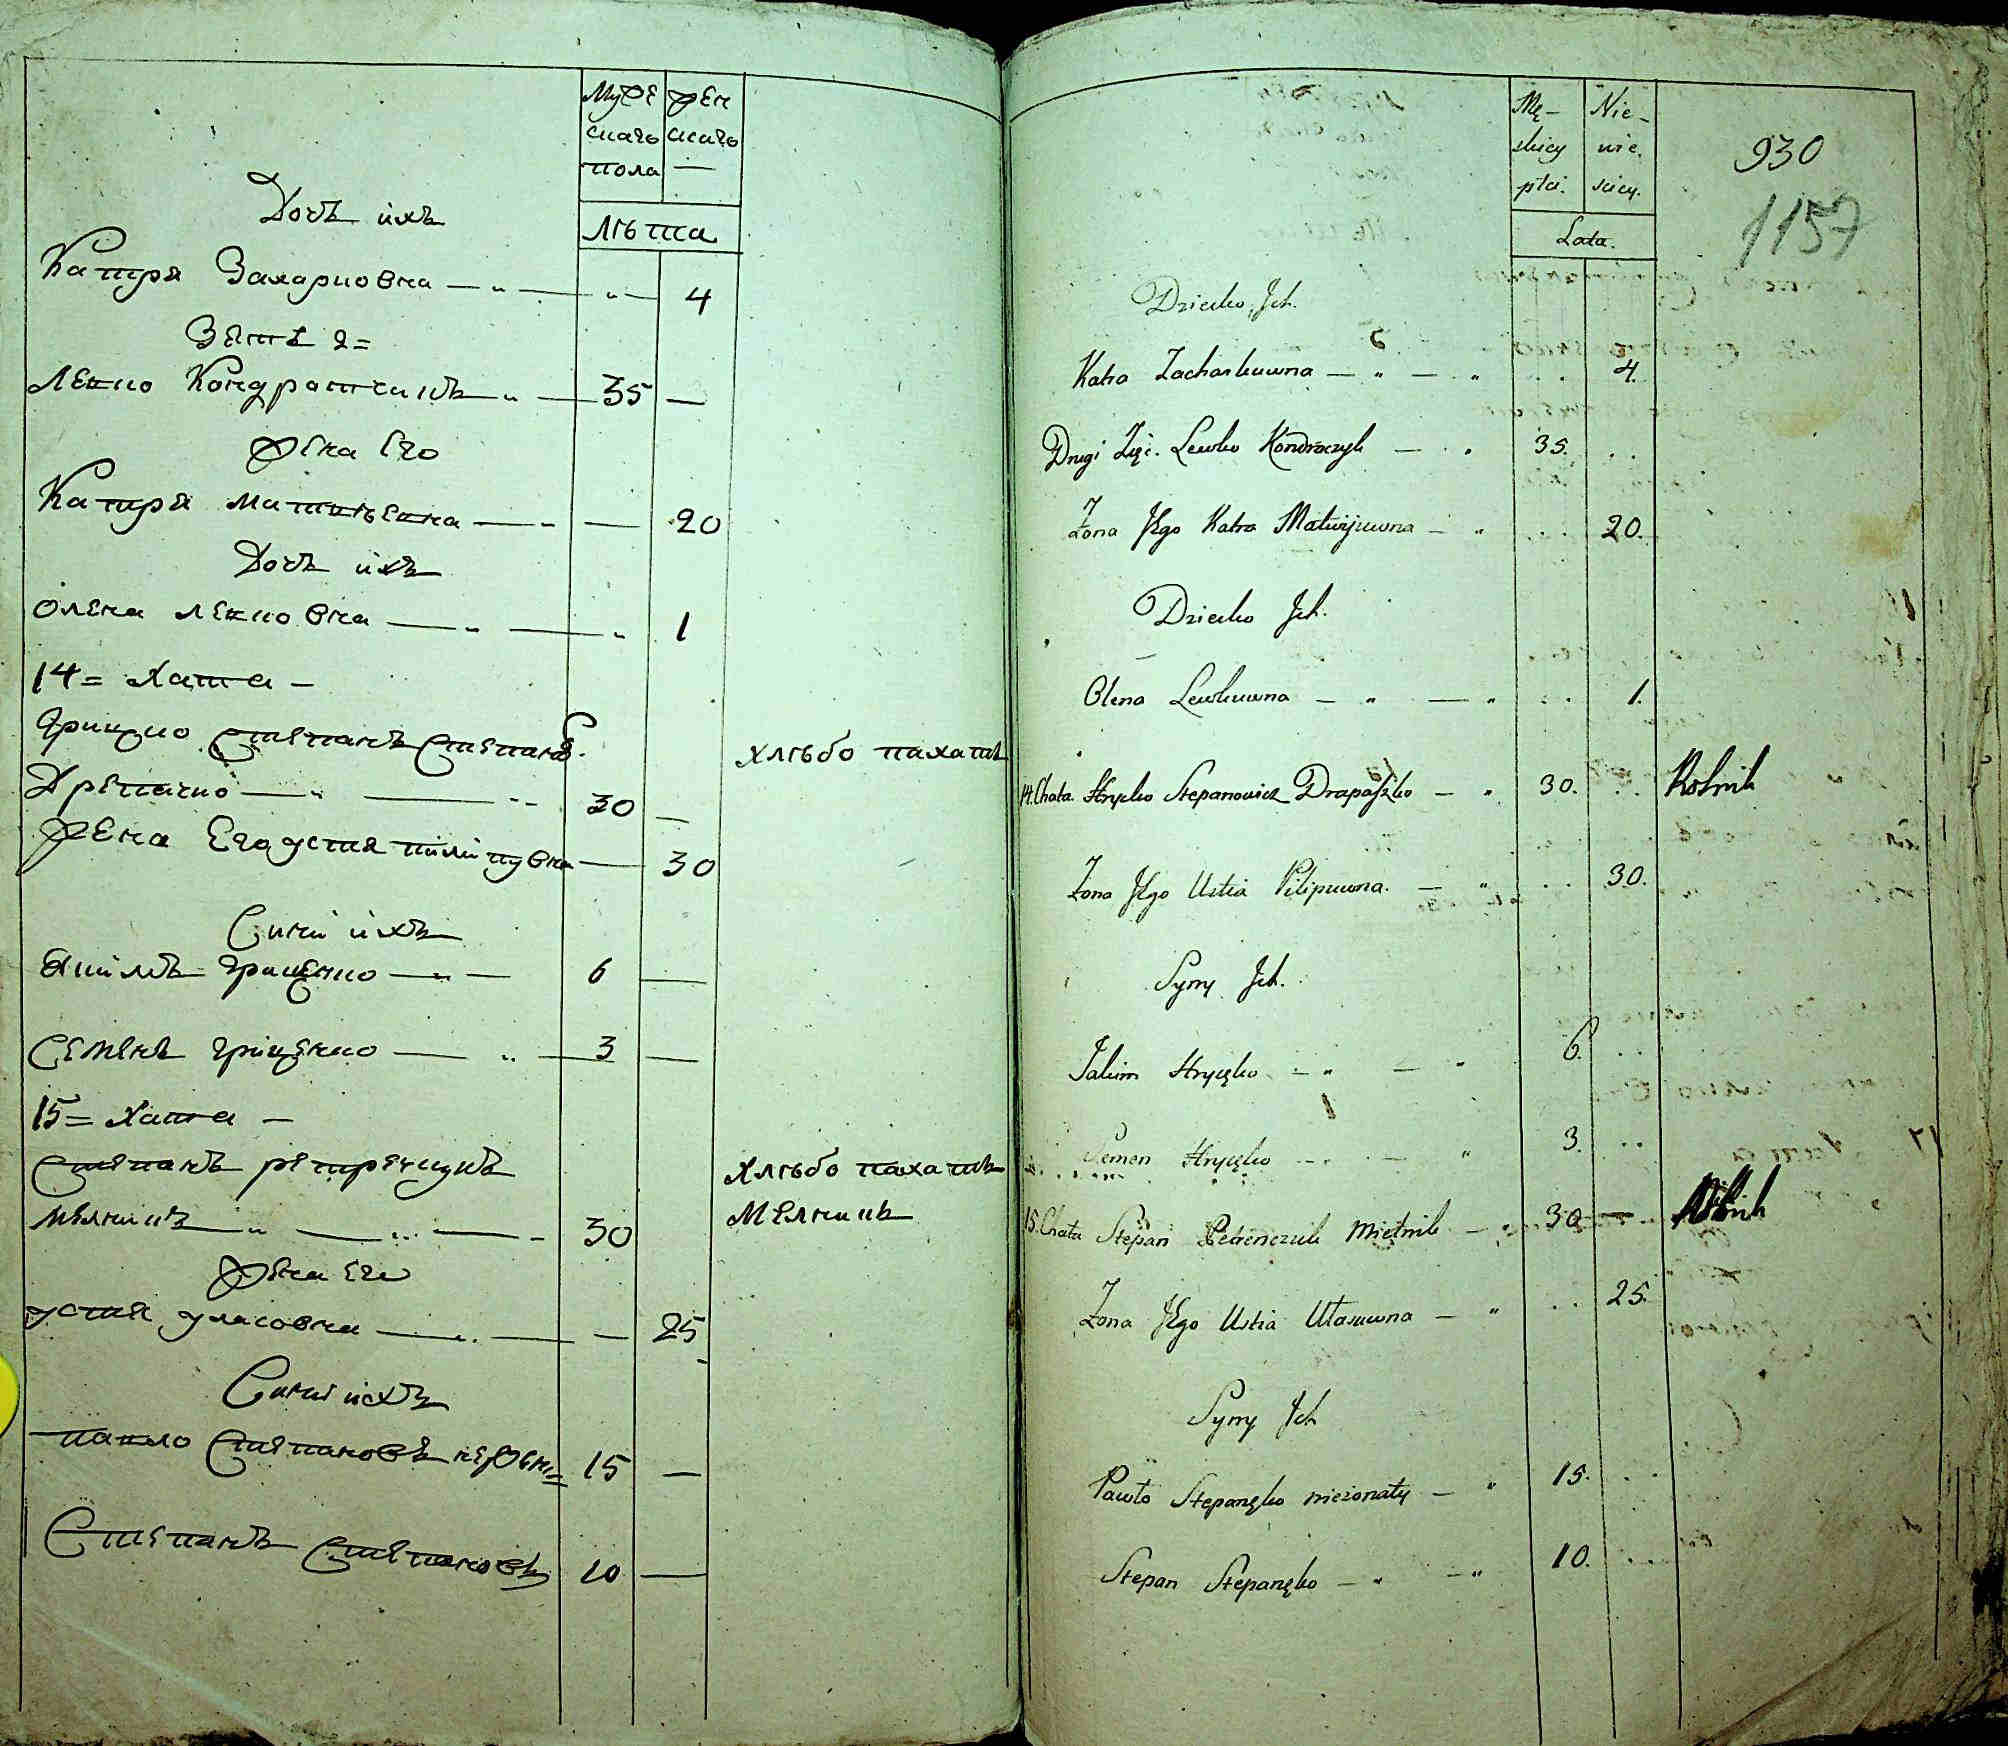 Мужескаго пола
женскаго —
Лѣта
Дочь ихъ
Катря Захарковна — „ — „ — 4
Зять 2=
Левко Кондратчикъ „ — 35 —
Жена его
Катря Матвѣевна — — 20
Дочь ихъ
Олена Левковна — „ — „ 1
14= Хата —
Грицко Степанъ Степановъ. хлѣбо пахатъ
— „ — „ 30 —
Жена Его устия пилипувна — 30
Сини ихъ
Якимъ Гриценко — „ — 6 —
Семенъ Гриценко — „ — 3 —
15= Хата —
Степанъ хлѣбо пахатъ
мелникъ „ — „ — 30 Мелникъ
Жена его
устия уласовна — „ — — 25
Сини ихъ
павло Степановъ 15 —
Степанъ Степановъ 10 —
Mę-skiey płci.
Nie-wie.sciey.
Lata.
930
1157
Dziecko Jch.
Katra Zacharkuwna — „ — „ . . 4.
Drugi Zięć. Lewko Kondraczyk — „ 35. . .
Żona Jego Katra Matwijuwna — „ . . . 20.
Dziecko Jch.
Olena Lewkuwna — „ — „ . . 1.
14. Chata. Hrycko Stepanowicz Drapaszko — „ 30. . . Rolnik
Żona Jego Ustia Pilipuwna. — „ . . 30.
Syny Jch.
Jakim Hryczko — „ — „ 6. . .
Semen Hryczko — . — „ 3. . .
15. Chata Stepan Petrenczuk Mielnik — „ 30 — Rolnik
Żona Jego Ustia Ułasuwna — „ . . 25.
Syny Jch
Pawło Stepanęko nieżonaty — „ 15. . .
Stepan Stepanęko — „ — „ 10. . .